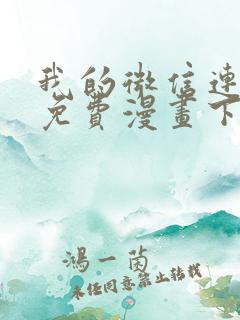 我的微信连
免費漫畫下
鴻一茵
未经同意禁止转载